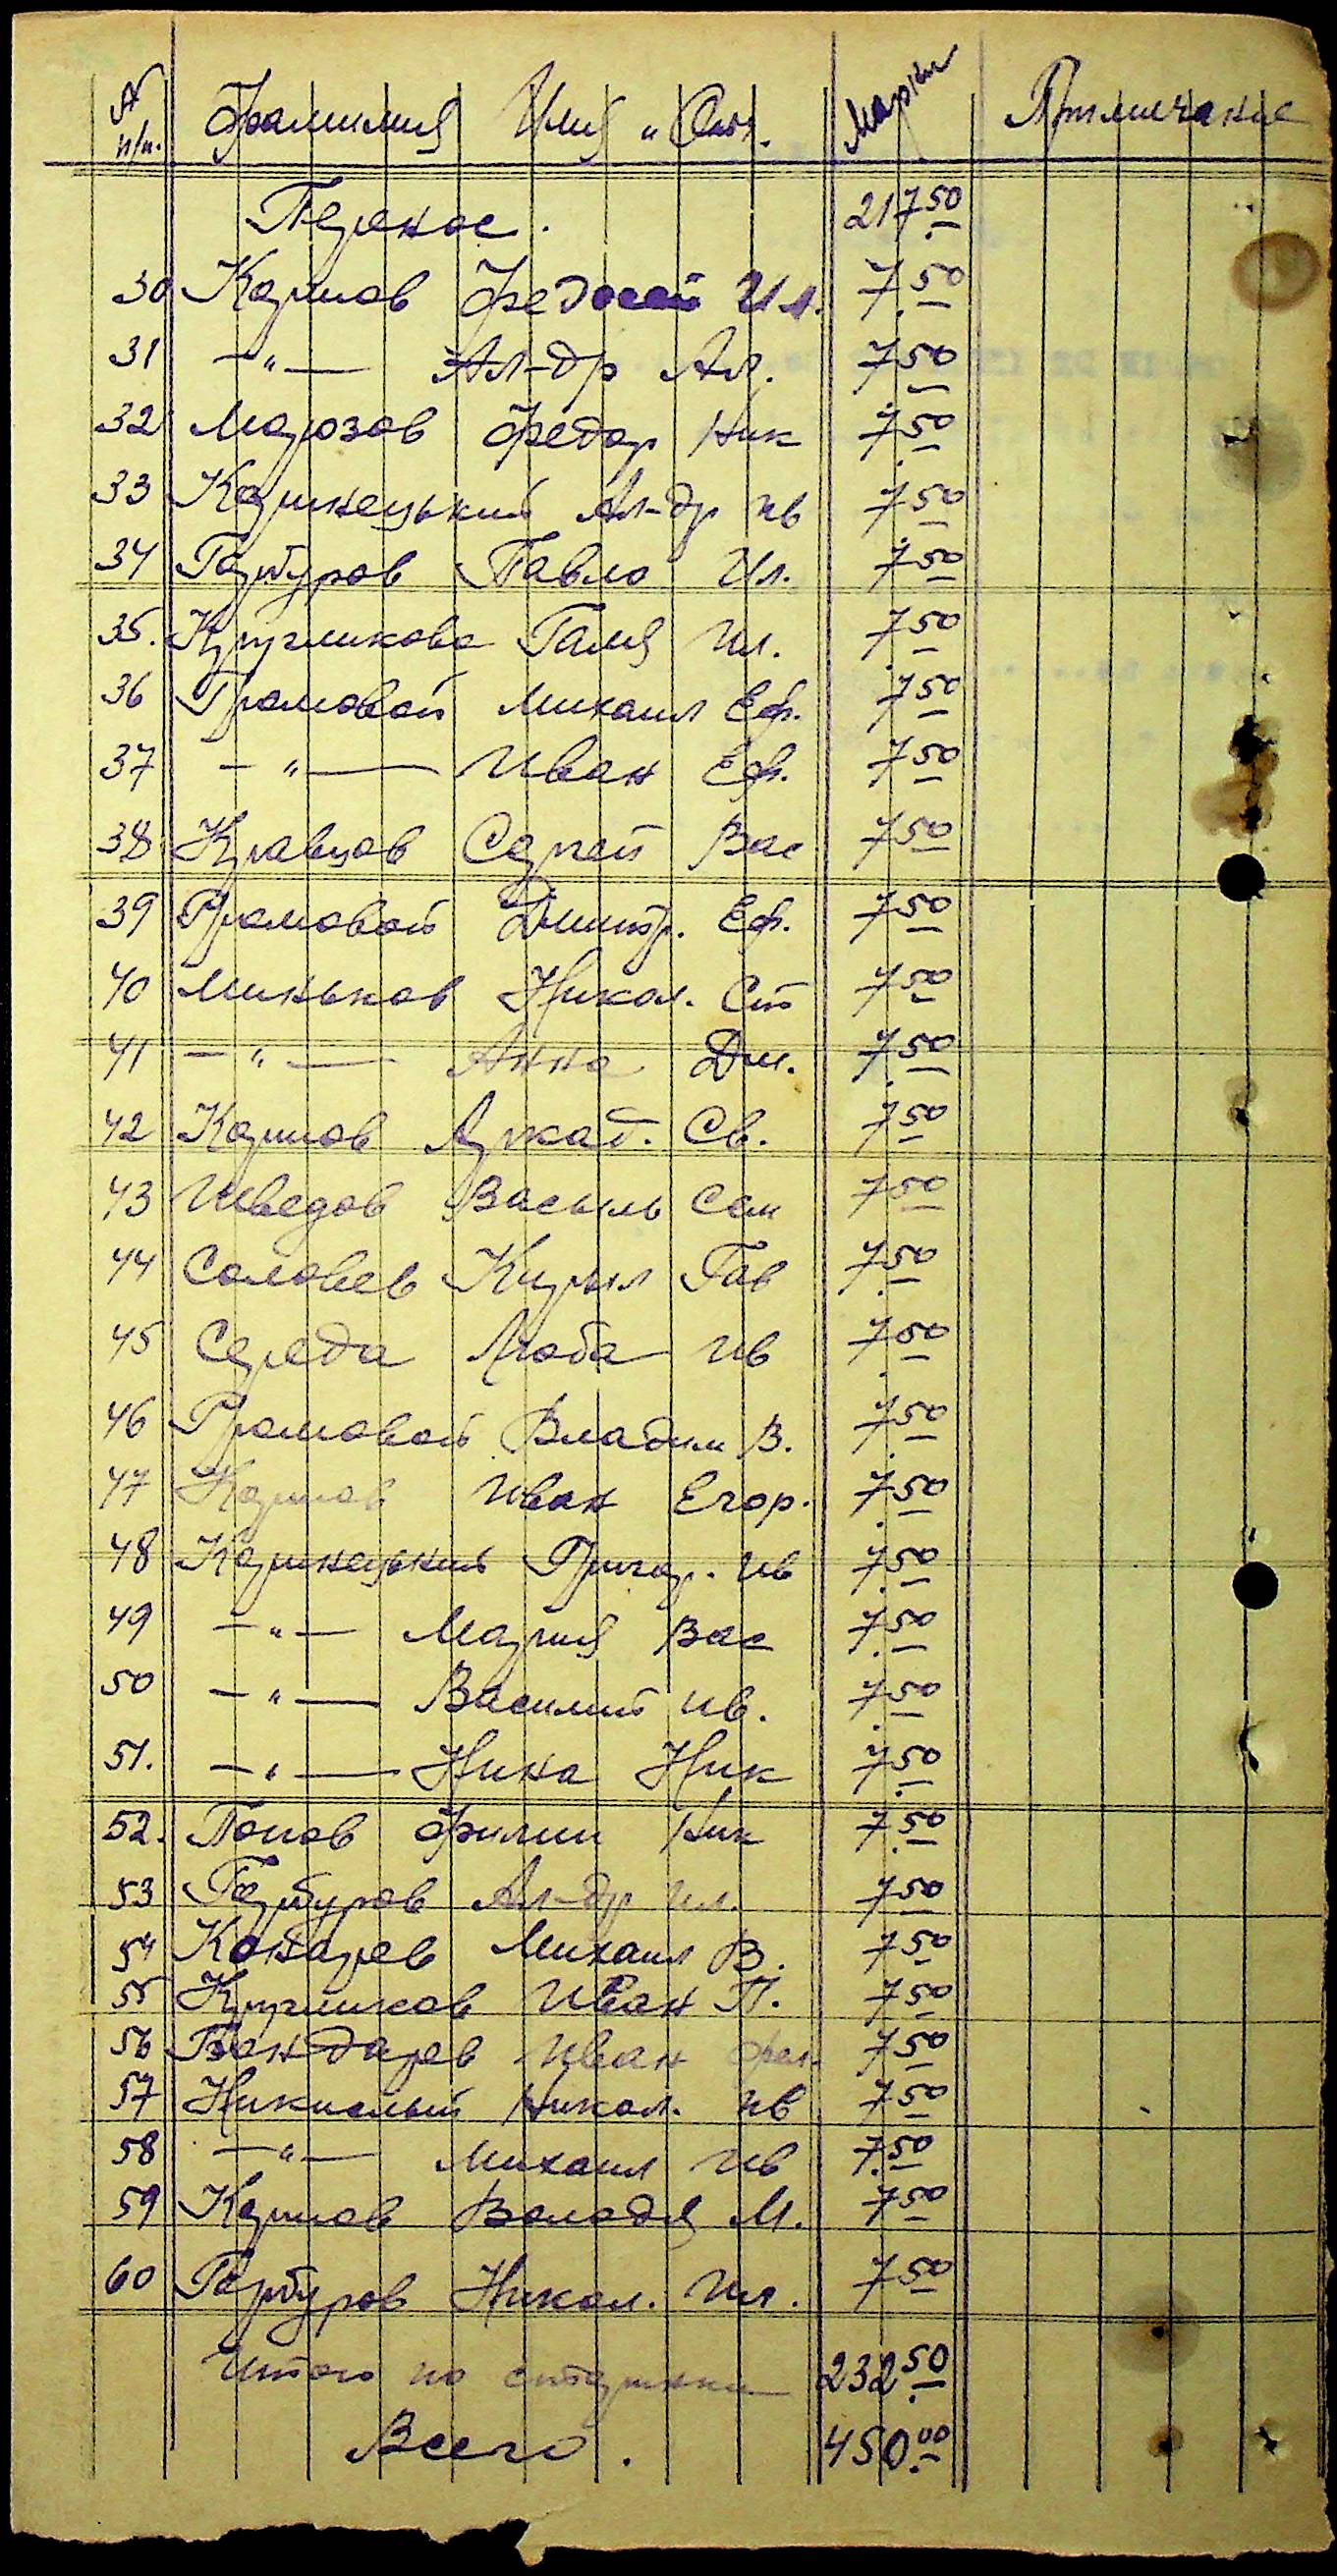 № п/п. Фамилия Имя и Отч. Марки Примечание
Перенос. 217.50
30 Карпов Федосей Ил. 7.50
31 —"— Ал-др Ал. 7.50
32 Марозов Федор Ник 7.50
33 Ал-др Ив 7.50
34 Гарбуров Павло Ил. 7.50
35. Кругликова Галя Ил. 7.50
36 Громовой Михаил Еф. 7.50
37 —"— Иван Еф. 7.50
38 Кравцов Сергей Вас 7.50
39 Громовой Дмитр. Еф. 7.50
40 Миньков Никол. Ст 7.50
41 —"— Анна Дм. 7.50
42 Карпов Аркад. Св. 7.50
43 Шведов Василь Сем 7.50
44 Соловев Кирил Гав 7.50
45 Середа Люба Ив 7.50
46 Громовой Владим В. 7.50
47 Карпов Иван Егор. 7.50
48 Григор. Ив 7.50
49 —"— Мария Вас 7.50
50 —"— Василий Ив. 7.50
51. —"— Нина Ник 7.50
52. Попов Филип Ник 7.50
53 Гарбуров Ал-др Ил. 7.50
54 Михаил В. 7.50
55 Кругликов Иван П. 7.50
56 Бондарев Иван 7.50
57 Никол. Ив 7.50
58 —"— Михаил Ив 7.50
59 Карпов Володя М. 7.50
60 Гарбуров Никол. Ил. 7.50
Итого по 232.50
Всего. 450.00